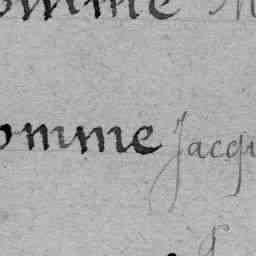 omme
omme Jacqu